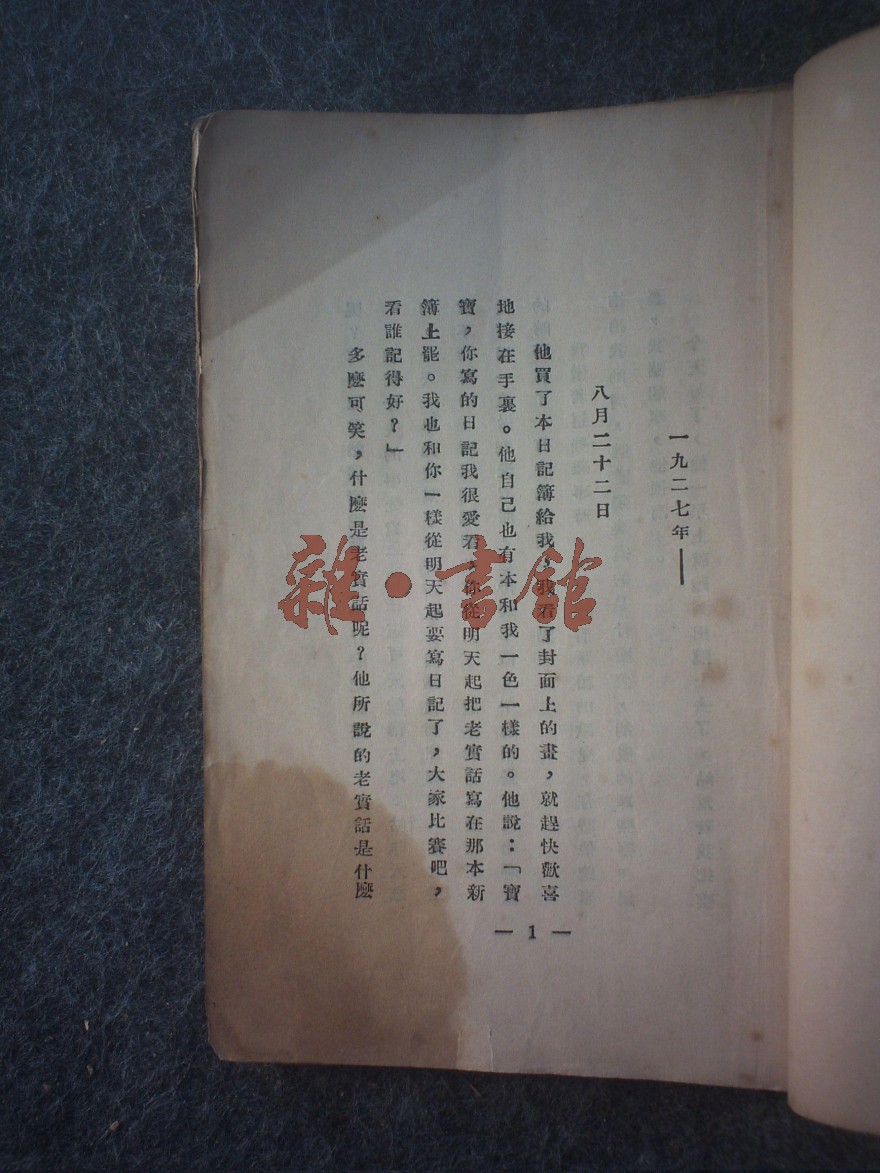 一九二七年——
八月二十二日
他買了本日記簿給我，我看了封面上的畫，就趕快歡喜
地接在手裏。他自己也有本和我一色一樣的。他說：「寶
寶，你寫的日記我很愛看，你從明天起把老實話寫在那本新
簿上罷。我也和你一樣從明天起要寫日記了，大家比賽吧，
看誰記得好？」
多麼可笑，什麼是老實話呢？他所說的老實話是什麼
— 1 —
雜·書館